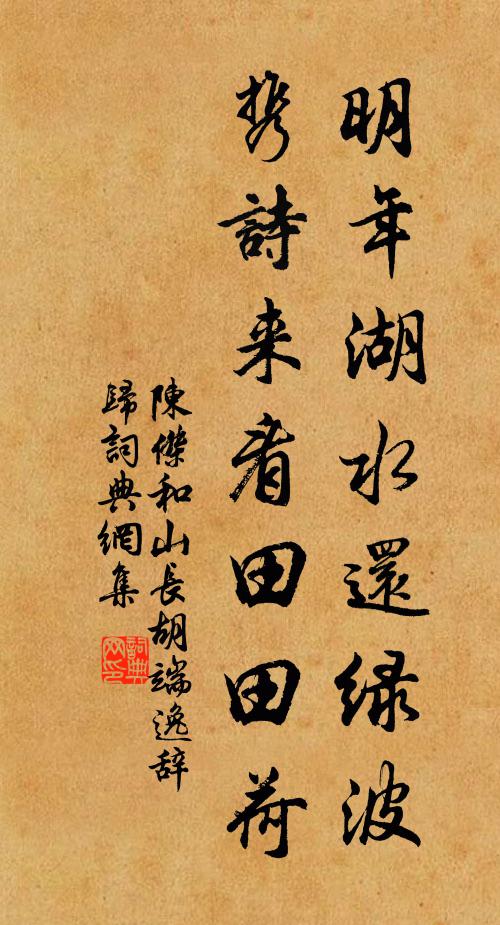 明年湖水還緑波
携詩来看田田荷
陳傑和山長胡端逸辞
歸詞典網集
詞典网印